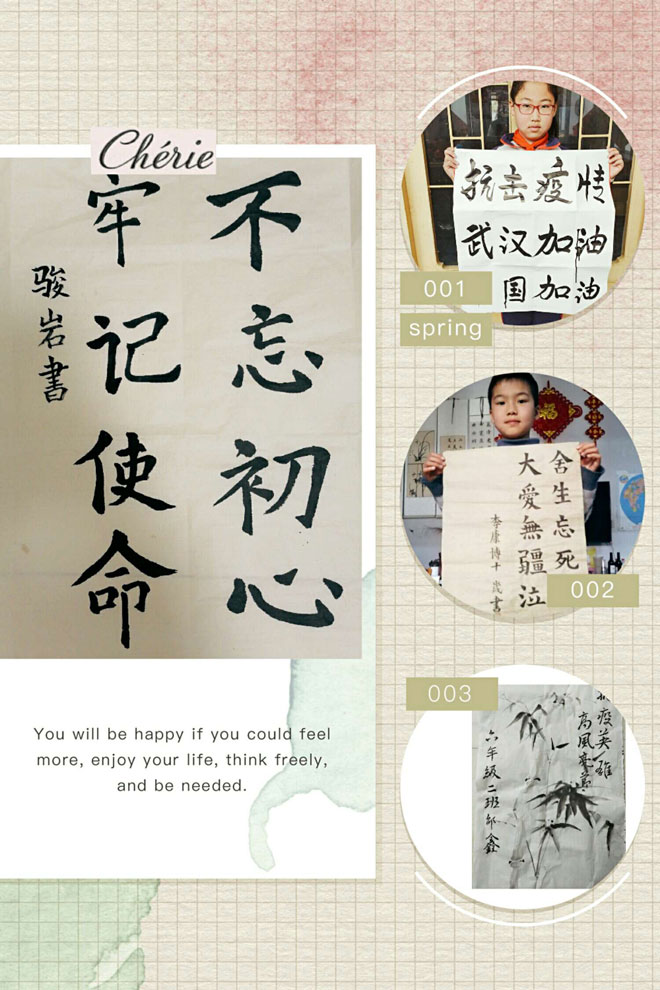 Chérie
不忘初心
牢记使命
骏岩書
You will be happy if you could feel
more, enjoy your life, think freely,
and be needed.
抗击疫情
武汉加油
国加油
001
spring
舍生忘死
大愛無疆泣
李康博十歲書
002
003
疫英雄
高風亮
六年级二班鑫